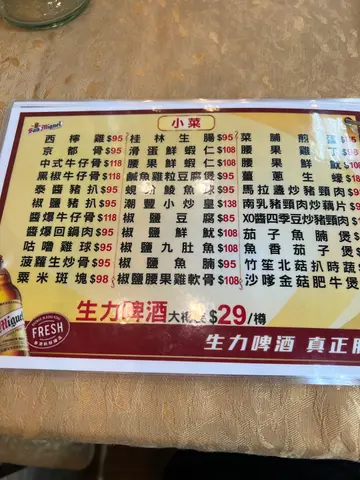 San Miguel
小菜
西檸雞$95
京都骨$95
中式牛仔骨$118
黑椒牛仔骨$118
泰醬豬扒$95
椒鹽豬扒$95
醬爆牛仔骨$118
醬爆回鍋肉$95
咕嚕雞球$95
菠蘿生炒骨$95
粟米斑塊$98
桂林生腸$95
滑蛋鮮蝦仁$108
腰果鮮蝦仁$108
鹹魚雞粒豆腐煲$95
蜆蚧鯪魚球$95
潮豐小炒皇$138
椒鹽豆腐$85
椒鹽鮮魷$108
椒鹽九肚魚$108
椒鹽魚腩$95
椒鹽腰果雞軟骨$108
菜脯煎
腰果雞丁
腰果鮮魷
薑蔥生
馬拉盞炒豬頸肉
南乳豬頸肉炒藕片
XO醬四季豆炒豬頸肉
茄子魚腩煲
魚香茄子煲
竹笙北菇扒時蔬
沙嗲金菇肥牛煲
生力啤酒 $29/樽
Miguel
FRESH
生力啤酒 真正